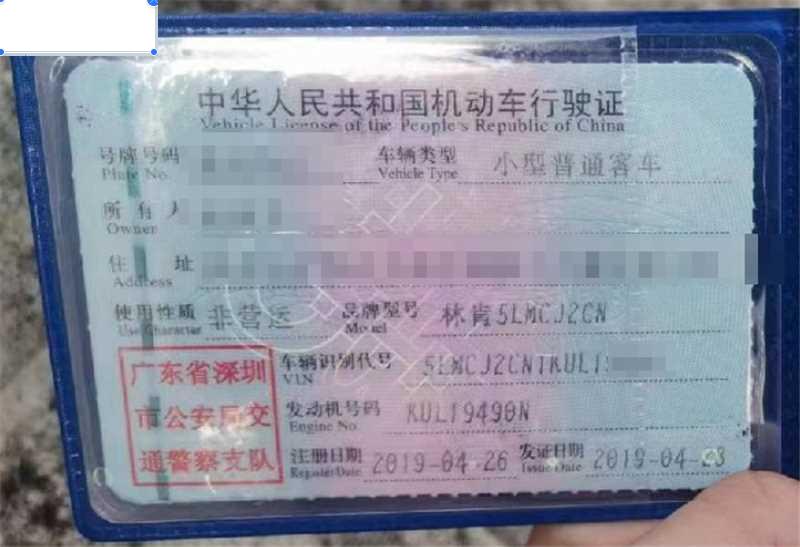 中华人民共和国机动车行驶证
Vehicle License of the People's Republic of China
号牌号码 车辆类型 小型普通客车
Plate No. Vehicle Type
所有人
Owner
住址
Address
使用性质 非营运 品牌型号 林肯5LMCJ2CN
Use Character Model
车辆识别代号 5LMCJ2CN1KUL1
VIN
广东省深圳
市公安局交
通警察支队
发动机号码 KUL19490N
Engine No.
注册日期 2019-04-26 发证日期 2019-04-28
Register Date Issue Date